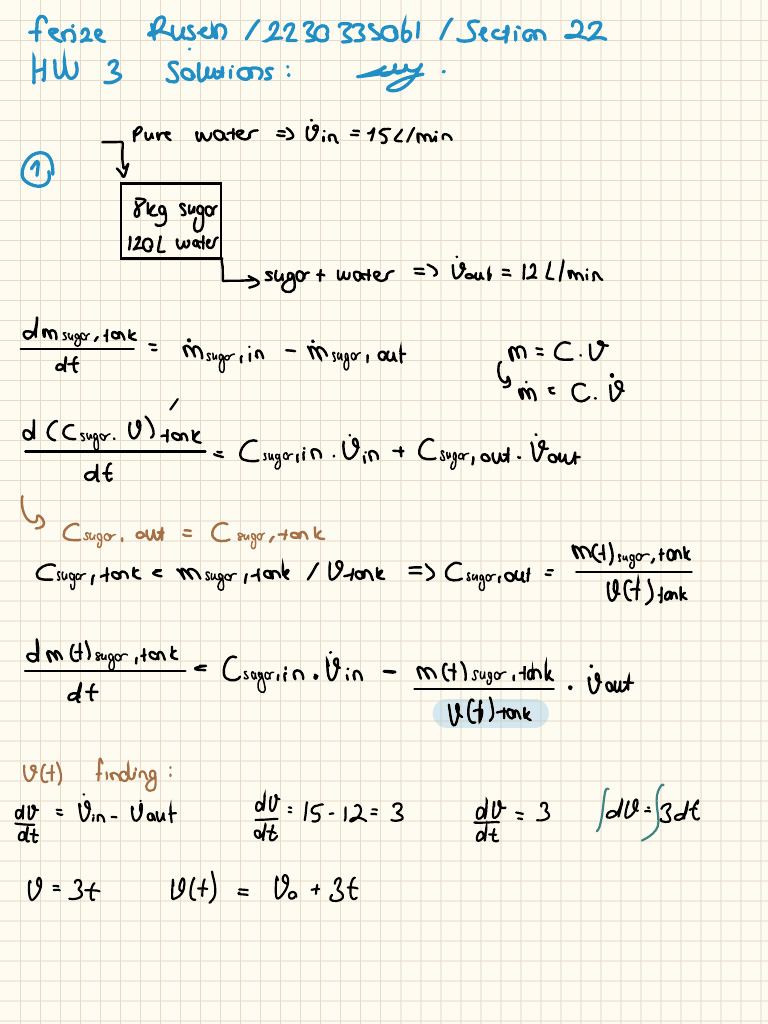 Ferize Rusen / 2230335061 / Section 22
HW 3 Solutions:
Pure water => V̇in = 15L/min
1
8kg sugar
120L water
sugar + water => V̇out = 12 L/min
dm sugar, tank / dt = ṁ sugar, in - ṁ sugar, out
m = C . V
ṁ = C. V̇
d (C sugar. V) tank / dt = C sugar, in . V̇in + C sugar, out . V̇out
C sugar, out = C sugar, tank
C sugar, tank = m sugar, tank / V tank => C sugar, out = m(t) sugar, tank / V(t) tank
dm(t) sugar, tank / dt = C sugar, in . V̇in - m(t) sugar, tank / V(t) tank . V̇out
V(t) finding:
dV/dt = V̇in - V̇out dV/dt = 15 - 12 = 3 dV/dt = 3 ∫dV = ∫3dt
V = 3t V(t) = V₀ + 3t